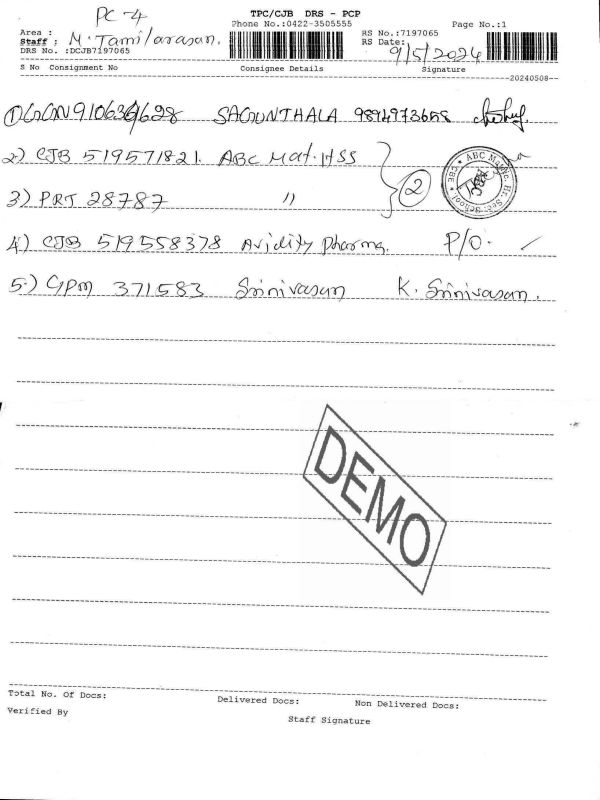 PC-4
TPC/CJB DRS - PCP
Phone No.:0422-3505555 Page No.:1
Area :
Staff : M. Tamilarasan. RS No.:7197065
DRS No. :DCJB7197065 RS Date: 9/5/2024
S No Consignment No Consignee Details Signature
20240508
1) 628 SAGUNTHALA
2) CJB 519571821. ABC Mat. HSS
2
ABC Matric. Hr. Sec. School CBE
3) PRT 28787 "
4) CJB 519558378 Avidity Pharma. P/O.
5.) GPM 371583 Srinivasan K. Srinivasan.
DEMO
Total No. Of Docs: Delivered Docs: Non Delivered Docs:
Verified By Staff Signature